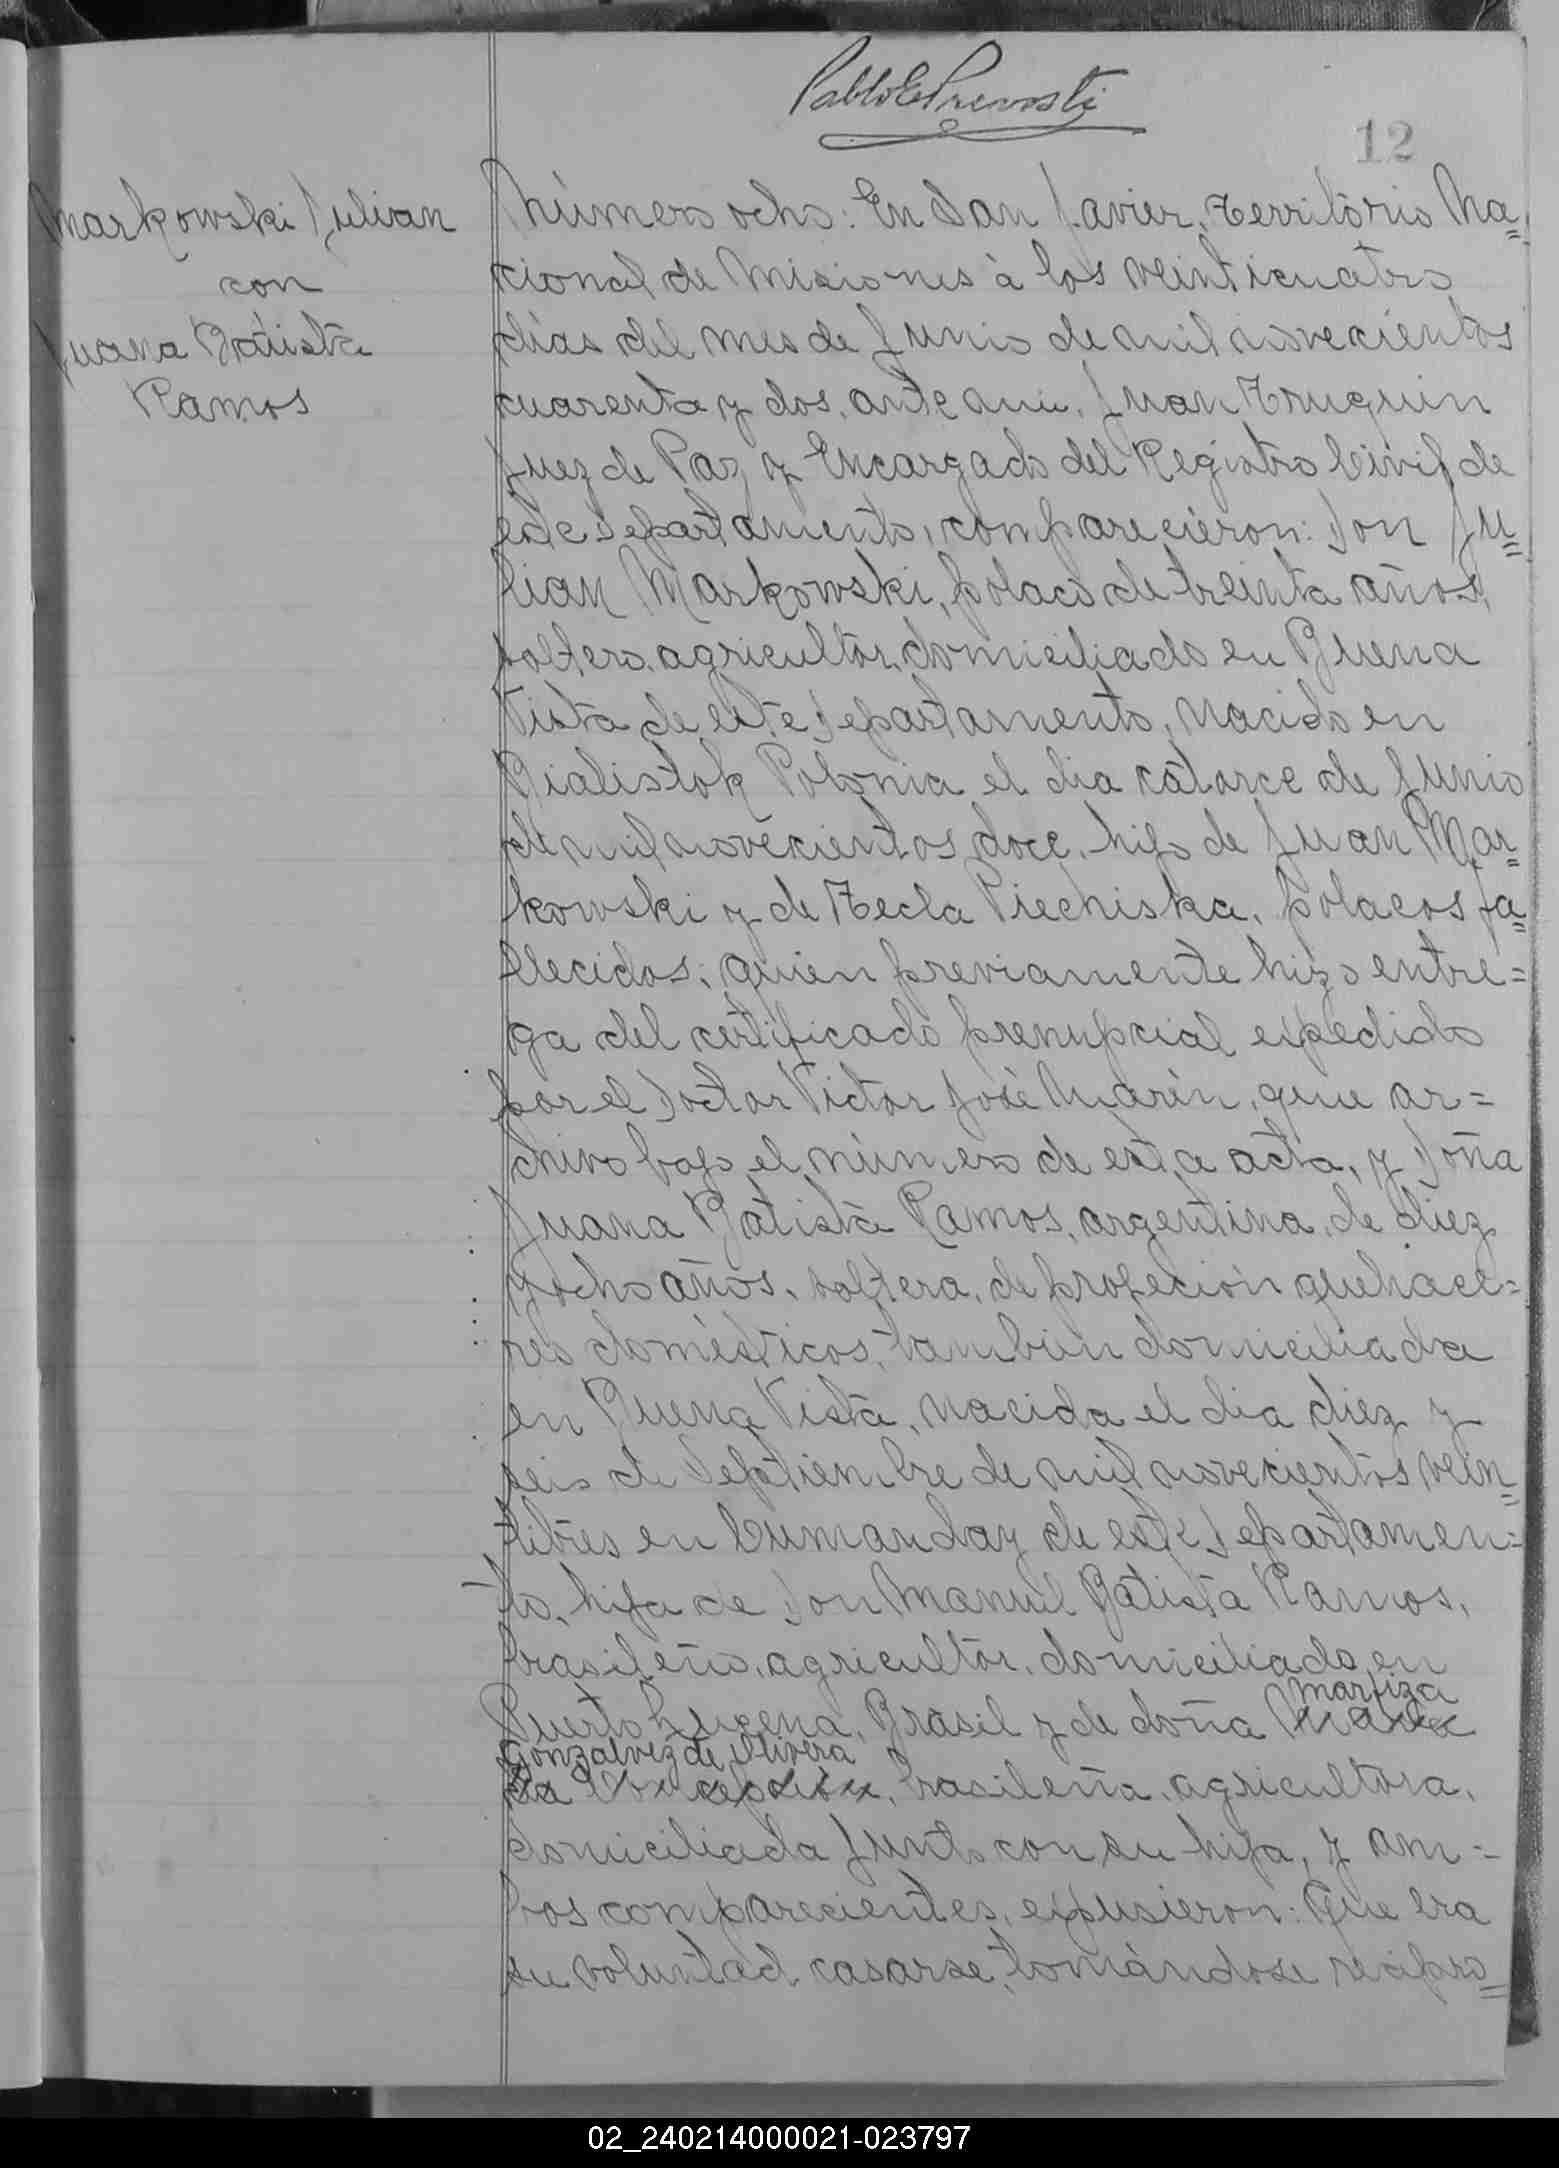 Pablo E Prevosti
12
Markowski Julian
con
Juana Batista
Ramos
Número ocho: En San Javier, Territorio Na=
cional de Misiones à los veinticuatro
dias del mes de Junio de mil novecientos
cuarenta y dos, ante mi, Juan Truquin
Juez de Paz y Encargado del Registro Civil de
este Departamento, comparecieron: Don Ju=
lian Markowski, polaco de treinta años,
soltero, agricultor, domiciliado en Buena
Vista de este Departamento, nacido en
Bialistok Polonia el dia catorce de Junio
de mil novecientos doce, hijo de Juan Mar=
kowski y de Tecla Piechiska, polacos fa=
llecidos; quien previamente hizo entre=
ga del certificado prenupcial expedido
por el Doctor Victor José Marin, que ar=
chivo bajo el número de esta acta, y Doña
Juana Batista Ramos, argentina, de diez
y ocho años, soltera, de profeción quehace=
res domésticos, tambien domiciliada
en Buena Vista, nacida el dia diez y
seis de Septiembre de mil novecientos vein=
titres en Cumanday de este Departamen=
to, hija de Don Manuel Batista Ramos,
brasileño, agricultor, domiciliado en
Puerto Lucena, Brasil y de doña Maria
Marfiza
Gonzalvez de Olivera
de Concepción, brasileña, agricultora,
domiciliada junto con su hija, y am=
bos comparecientes, expusieron: Que era
su voluntad casarse, tomándose recipro=
02_240214000021-023797